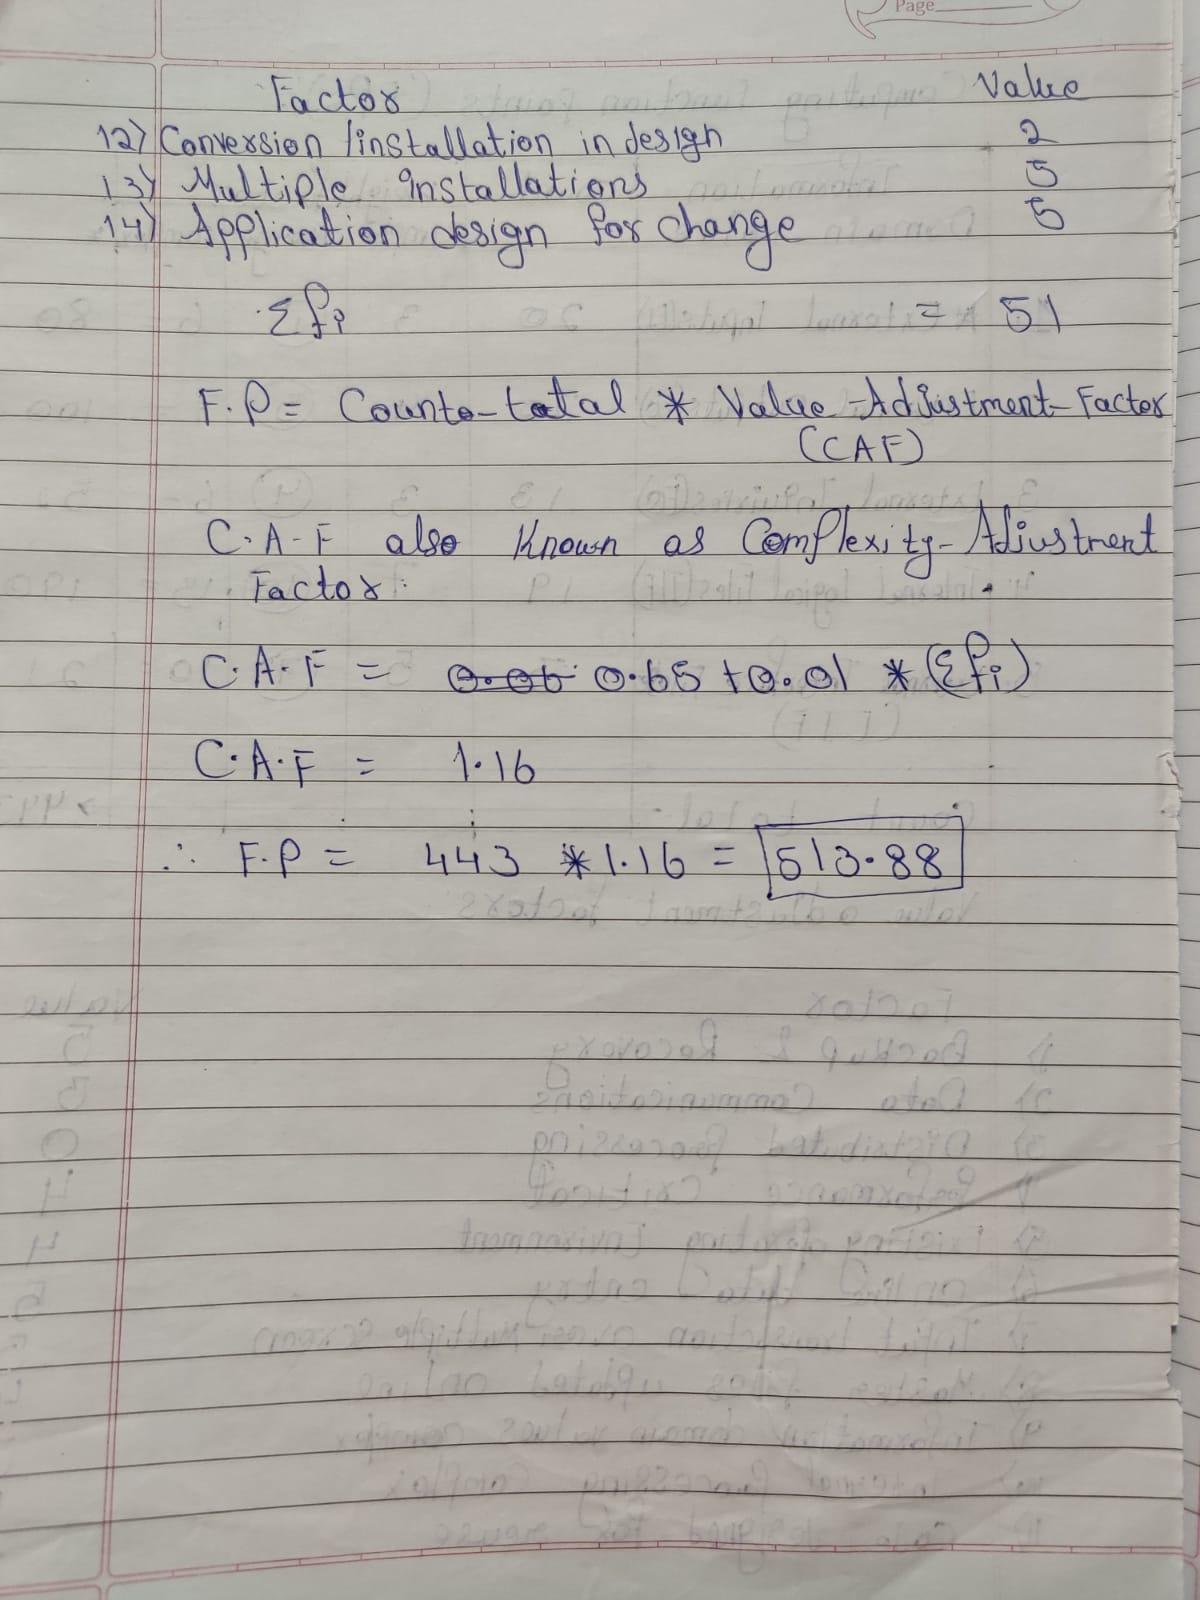 Page
Factor Value
12) Conversion /installation in design 2
13) Multiple installations 5
14) Application design for change 5
Σfi = 51
F.P = Counto-total * Value-Adjustment-Factor
(CAF)
C.A-F also known as Complexity-Adjustment
Factor.
C.A.F = 0.06 0.65 +0.01 * (Σfi)
C.A.F = 1.16
∴ F.P = 443 * 1.16 = 513.88